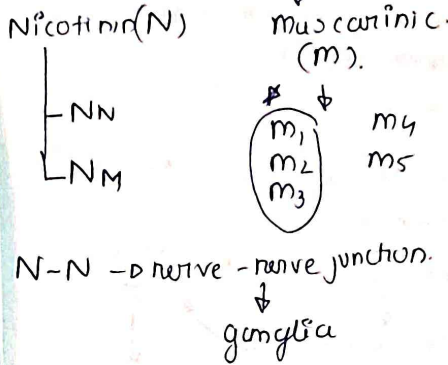 Nicotinin(N) muscarinic.
(m).
NN m1 m4
NM m2 m5
m3
N-N → nerve - nerve junction.
↓
ganglia